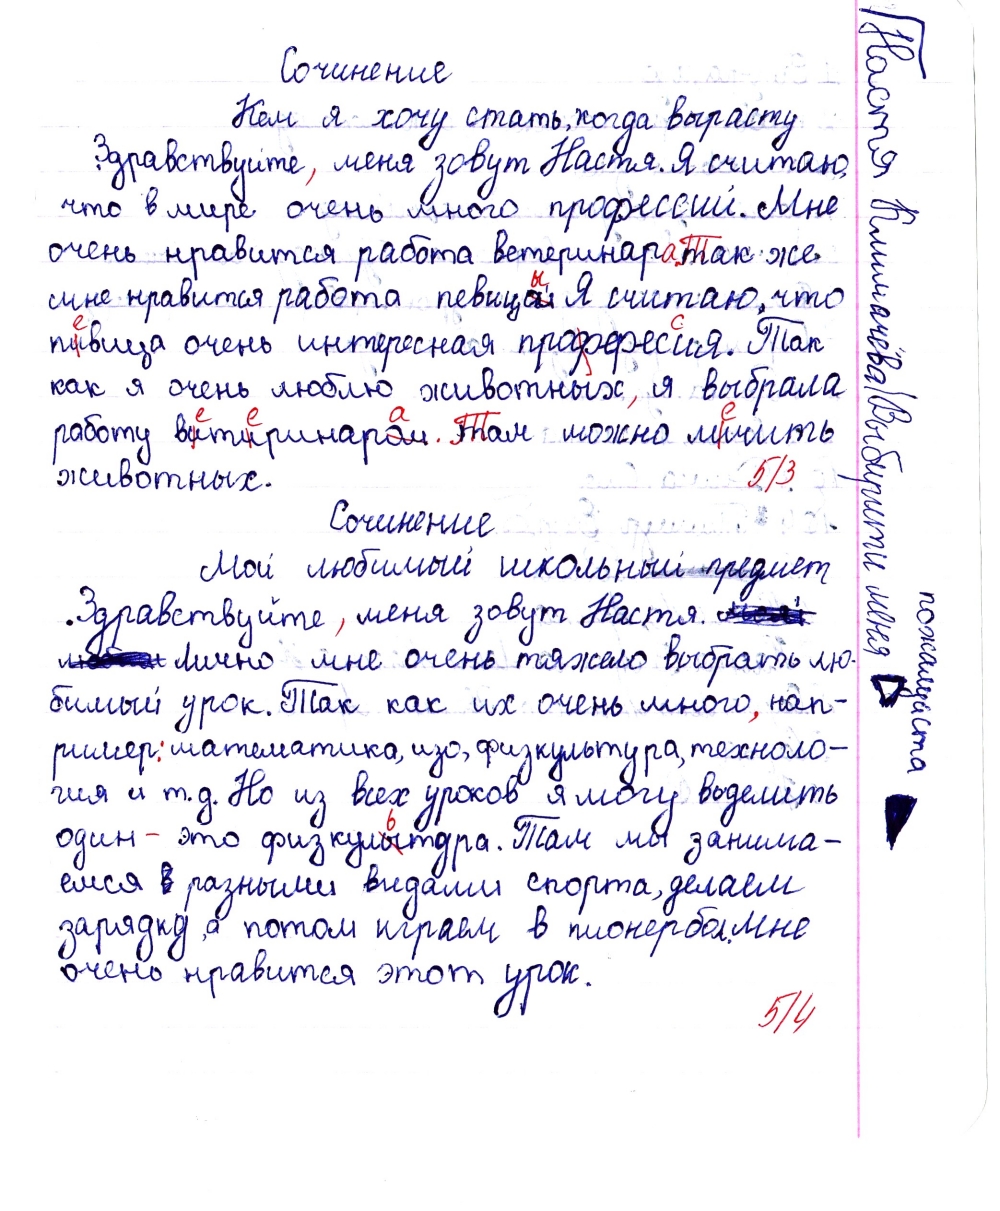 Сочинение
Кем я хочу стать, когда вырасту
Здравствуйте, меня зовут Настя. Я считаю,
что в мире очень много профессий. Мне
очень нравится работа ветеринара. Так же
мне нравится работа певицы Я считаю, что
певица очень интересная профессия. Так
как я очень люблю животных, я выбрала
работу ветеринара. Там можно лечить
животных.
5/3
Сочинение
Мой любимый школьный предмет
Здравствуйте, меня зовут Настя.
Лично мне очень тяжело выбрать лю-
бимый урок. Так как их очень много, нап-
ример: математика, изо, физкультура, техноло-
гия и т.д. Но из всех уроков я могу выделить
один - это физкультура. Там мы занима-
емся в разными видами спорта, делаем
зарядку, а потом играем в пионербол. Мне
очень нравится этот урок.
5/4
Настя Климачёва
Выбирити меня
пожалуйста